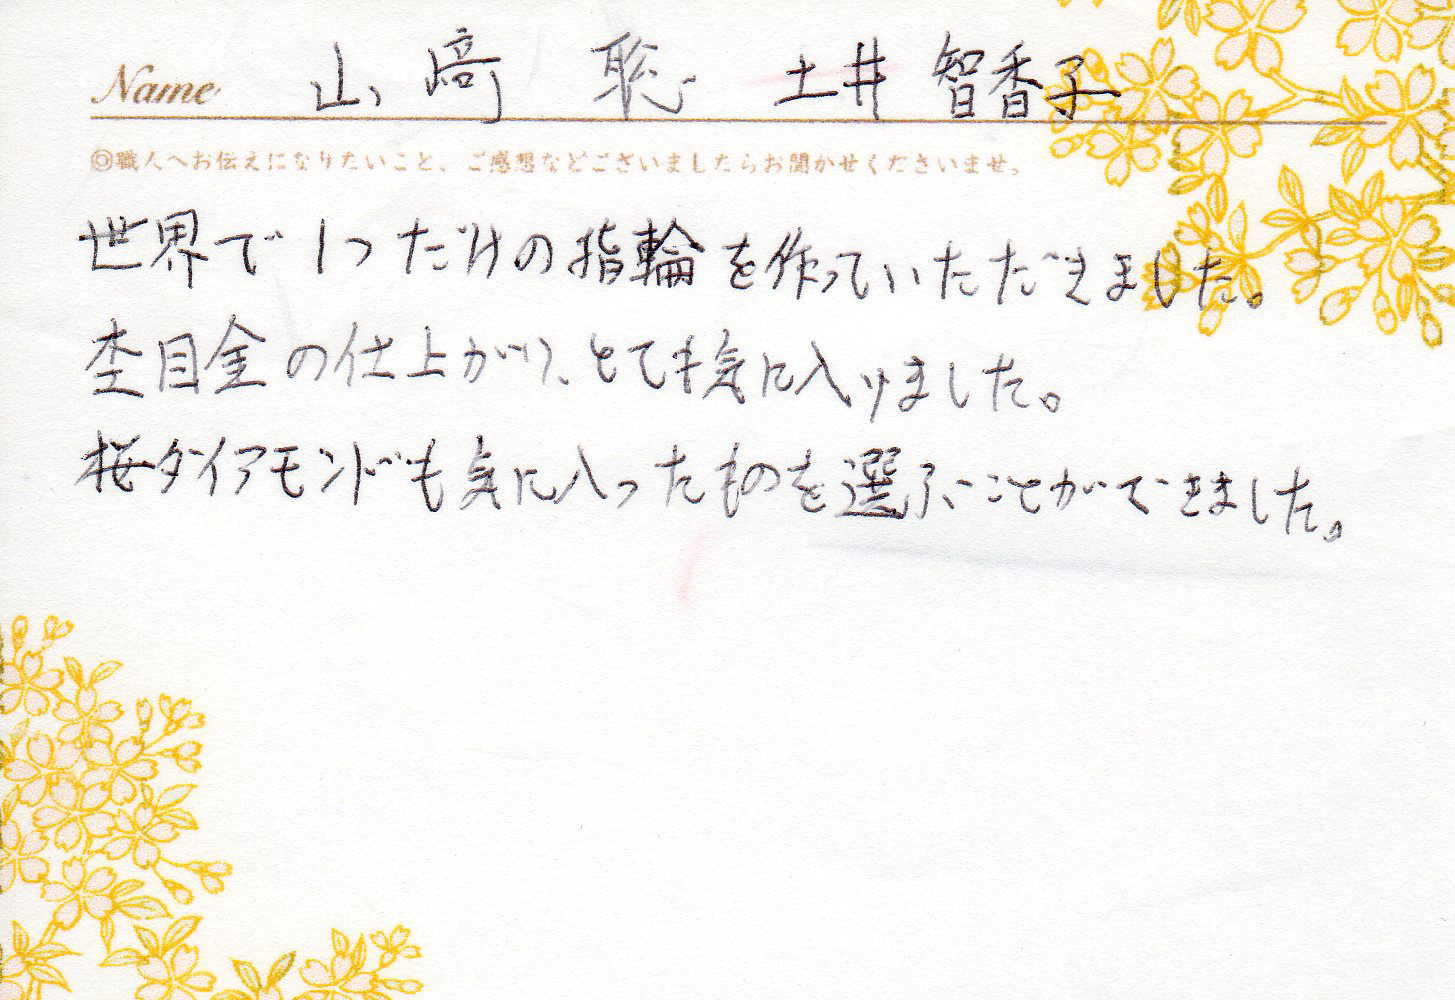 Name 山﨑 聡 土井 智香子
◎職人へお伝えになりたいこと、ご感想などございましたらお聞かせくださいませ。
世界で1つだけの指輪を作っていただきました。
杢目金の仕上がり、とても気に入りました。
桜ダイアモンドも気に入ったものを選ぶことができました。